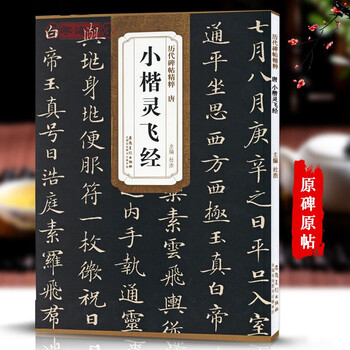 七月八月庚辛之日平旦入室
通平坐思西方西極玉
素雲飛輿從
内手執通靈
便服符一枚微祝曰
白帝玉真号曰浩庭素羅飛裙
历代碑帖精粹 唐
小楷灵飞经
主编 杜浩
安徽美术出版社
历代碑帖精粹
唐 小楷灵飞经
主编 杜浩
原碑原帖